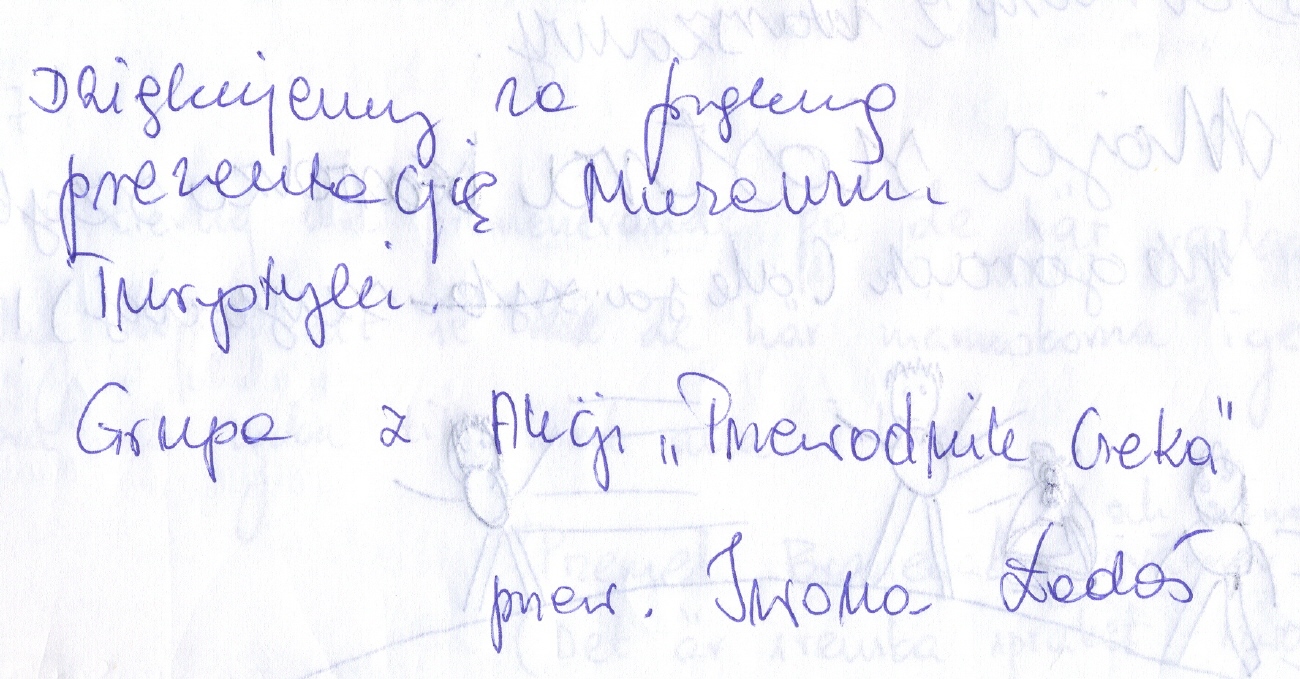 Dziękujemy za piękną
prezentację Muzeum
Turystyki.
Grupa z Akcji „Przewodnik Czeka”
przew. Iwona Ładoś